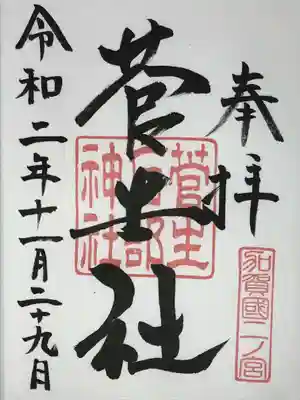 奉拝
加賀國二ノ宮
菅生社
菅生石部神社
令和二年十一月二十九日